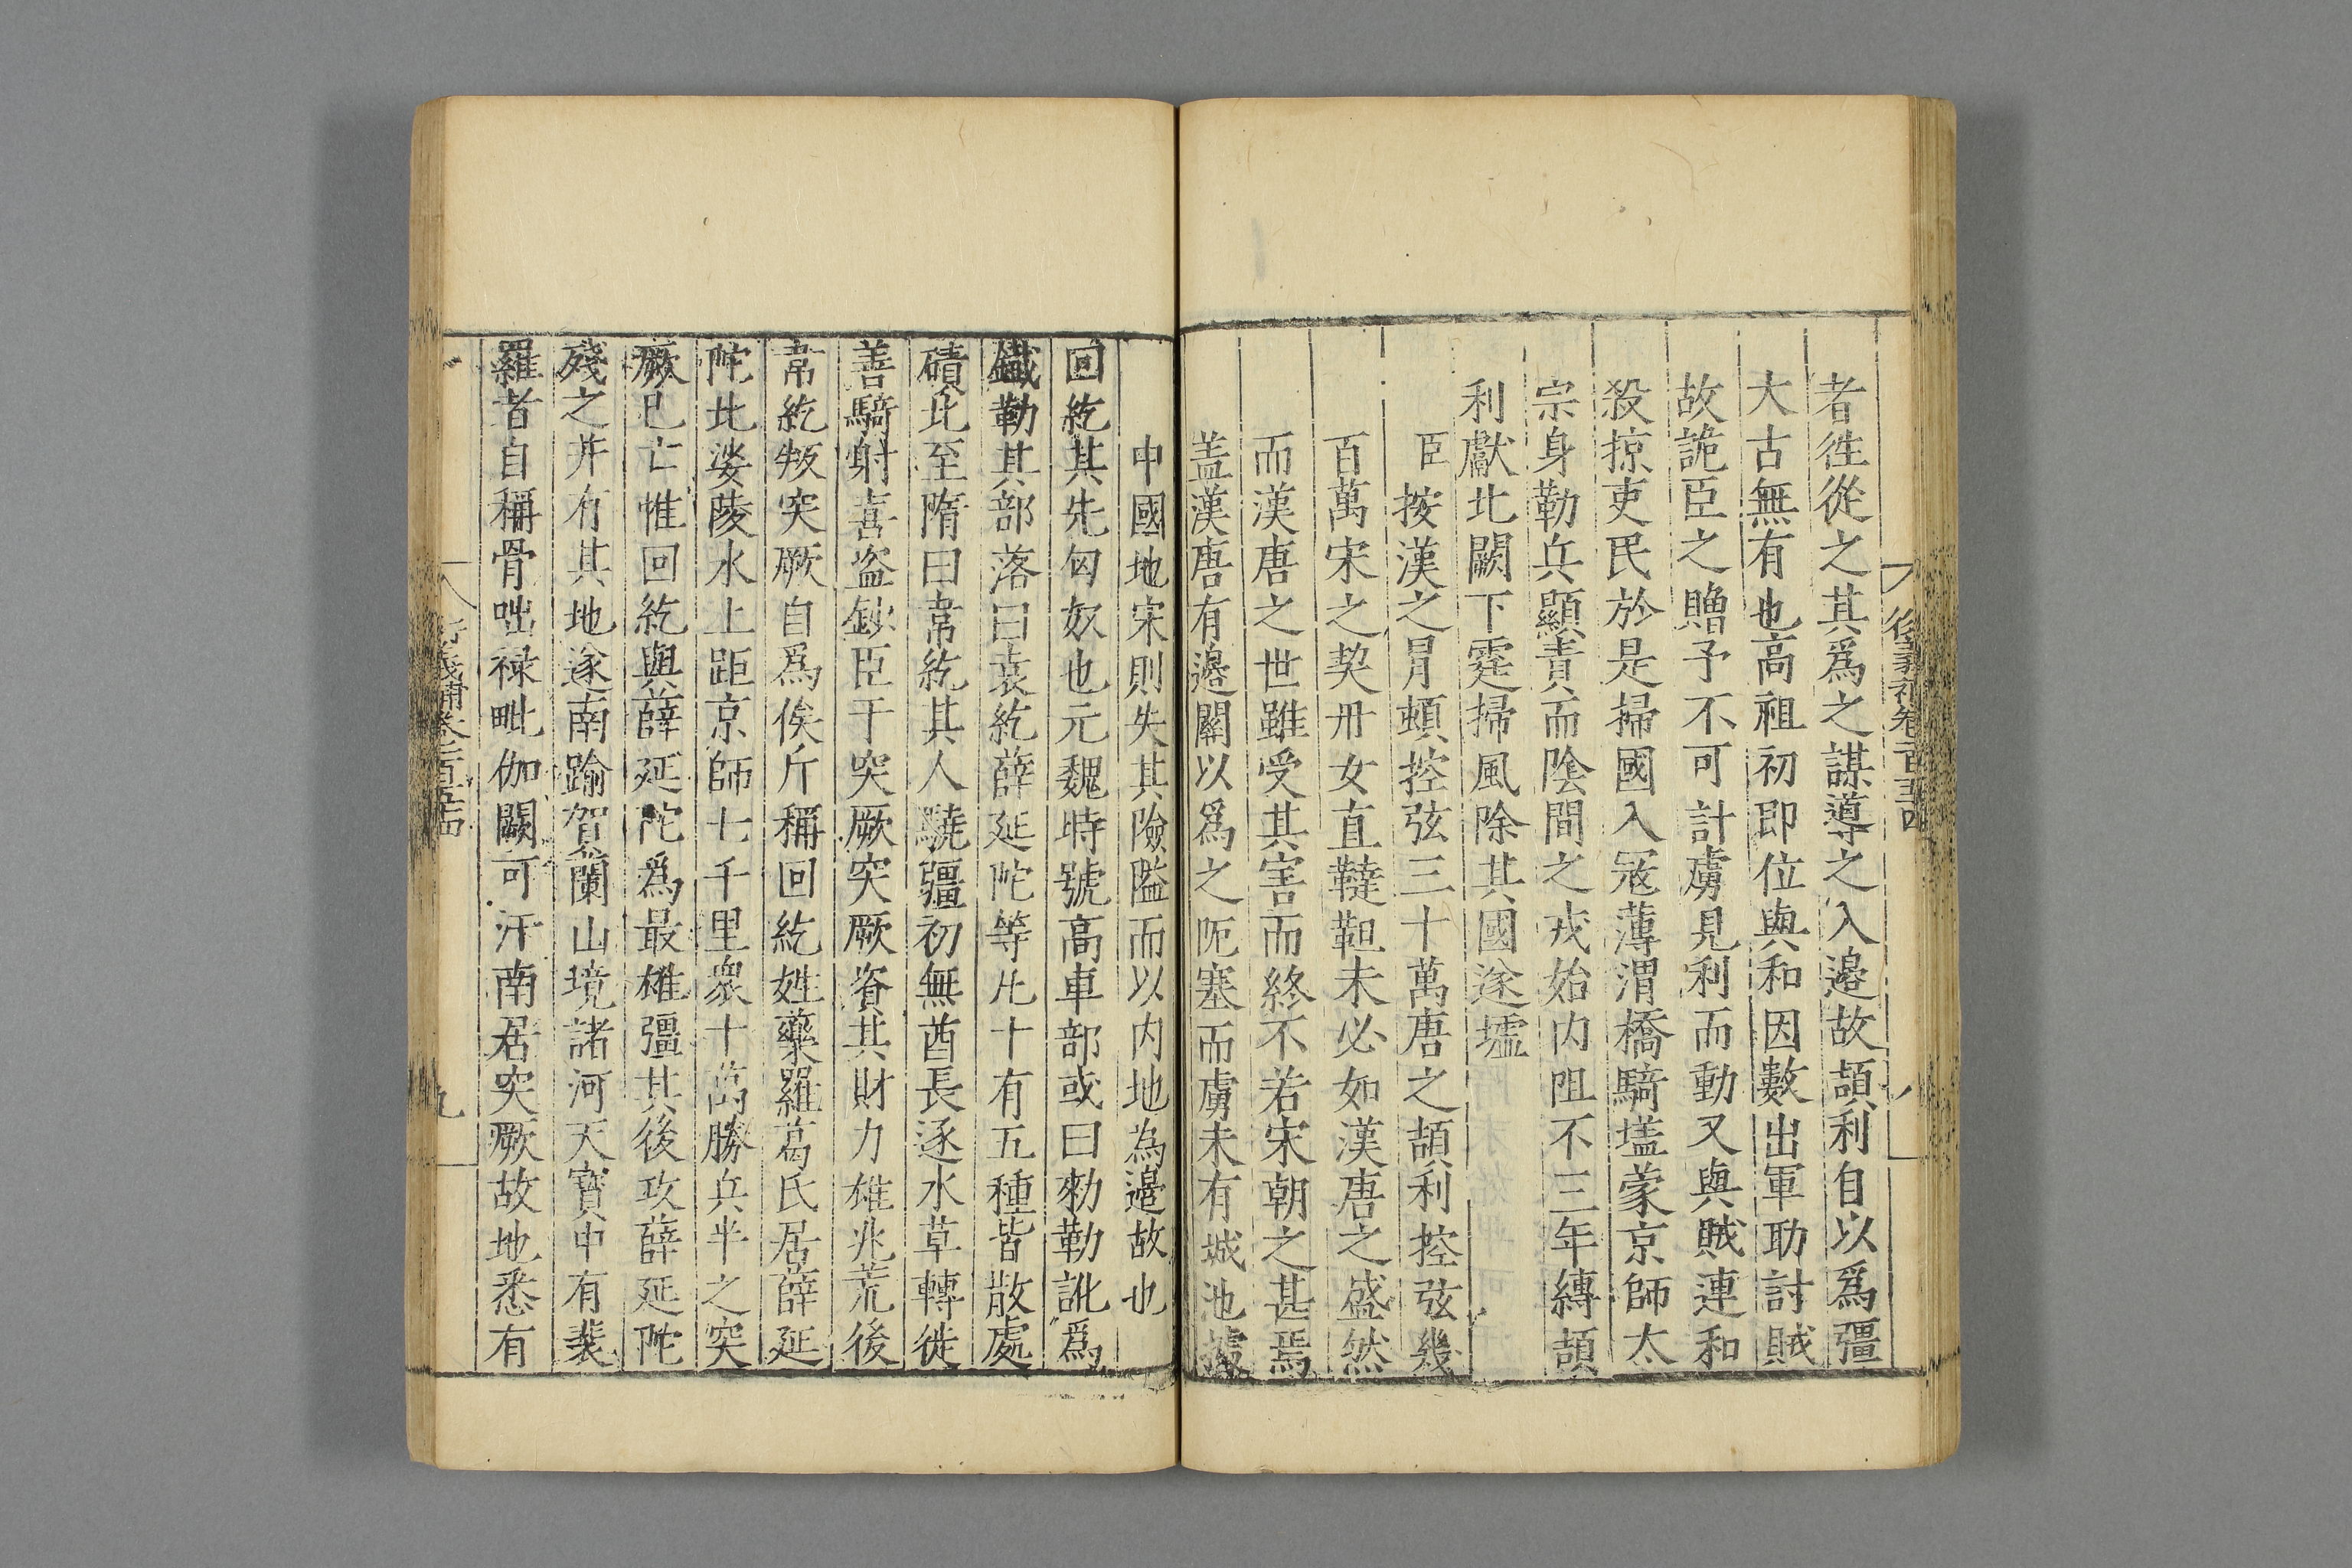 者徃從之其爲之謀導之入邉故頡利自以爲彊
大古無有也高祖初即位與和因數出軍助討賊
故詭臣之贈予不可計虜見利而動又與賊連和
殺掠吏民於是掃國入宼薄渭橋騎壒蒙京師太
宗身勒兵顯責而陰間之戎始内阻不三年縛頡
利獻北闕下霆掃風除其國遂墟
臣按漢之冐頓控弦三十萬唐之頡利控弦幾
百萬宋之契丹女直韃靼未必如漢唐之盛然
而漢唐之世雖受其害而終不若宋朝之甚焉
盖漢唐有邉關以爲之阨塞而虜未有城池據
中國地宋則失其險隘而以内地為邉故也
回紇其先匈奴也元魏時號高車部或曰勑勒訛爲
鐵勒其部落曰袁紇薛延陀等凡十有五種皆散處
磧北至隋曰韋紇其人驍彊初無酋長逐水草轉徙
善騎射喜盗鈔臣于突厥突厥資其財力雄北荒後
韋紇叛突厥自爲俟斤稱回紇姓藥羅葛氏居薛延
陀北娑陵水上距京師七千里衆十萬勝兵半之突
厥巳亡惟回紇與薛延陀爲最雄彊其後攻薛延陀
殘之并有其地遂南踰賀蘭山境諸河天寳中有裴
羅者自稱骨咄禄毗伽闕可汗南居突厥故地悉有